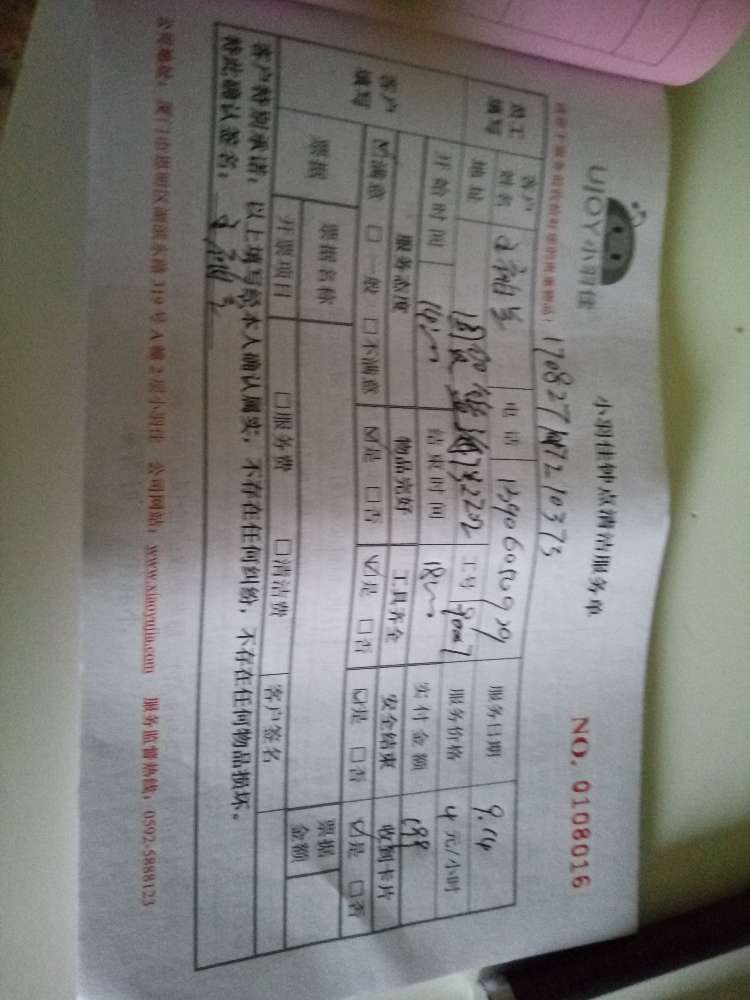 UJOY小羽佳
小羽佳钟点清洁服务单
NO. 0108016
员工填写
客户姓名
电话
服务日期 9.14
地址
工号
服务价格 4 元/小时
开始时间 14:00
结束时间 18:00
实付金额 198
客户填写
服务态度 物品完好 工具齐全 安全结束 收到卡片
☑满意 □一般 □不满意 ☑是 □否 ☑是 □否 ☑是 □否 ☑是 □否
票据
票据名称
票据金额
开票项目 □服务费 □清洁费 客户签名
客户特别承诺:以上填写经本人确认属实,不存在任何纠纷,不存在任何物品损坏。
特此确认签名:
公司地址:厦门市思明区湖滨东路 319 号 A 幢 2 层小羽佳 公司网站:www.xiaoyujia.com 服务监督热线:0592-5888123